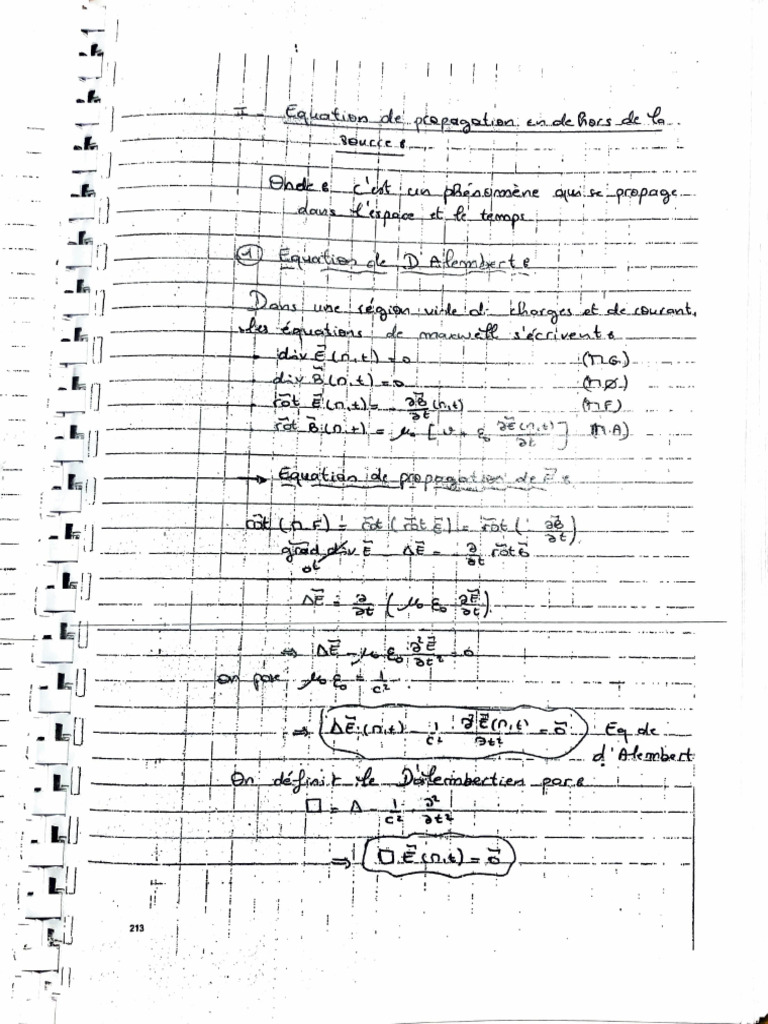 I - Equation de propagation en dehors de la
source :
Onde : c'est un phénomène qui se propage
dans l'espace et le temps
① Equation de D'Alembert :
Dans une région vide di charges et de courant,
les équations de maxwell s'écrivent :
div E⃗ (M,t) = 0 (M G)
div B⃗ (M,t) = 0 (M Ø)
rot⃗ E⃗ (M,t) = - ∂B⃗/∂t (M,t) (M F)
rot⃗ B⃗ (M,t) = μ₀ [ + ε₀ ∂E⃗(M,t)/∂t ] (M.A)
→ Equation de propagation de E⃗ :
rot⃗ (M F) = rot⃗ ( rot⃗ E⃗ ) = rot⃗ ( - ∂B⃗/∂t )
grad⃗ div E⃗ - ΔE⃗ = - ∂/∂t rot⃗ B⃗
ΔE⃗ = ∂/∂t ( μ₀ ε₀ ∂E⃗/∂t )
⇔ ΔE⃗ - μ₀ ε₀ ∂²E⃗/∂t² = 0
on pose μ₀ ε₀ = 1/c²
⇒ ΔE⃗ (M,t) - 1/c² ∂²E⃗(M,t)/∂t² = 0⃗ Eq de
d'Alembert
On définit le D'alembertien par :
□ = Δ - 1/c² ∂²/∂t²
⇒ □ E⃗ (M,t) = 0⃗
213